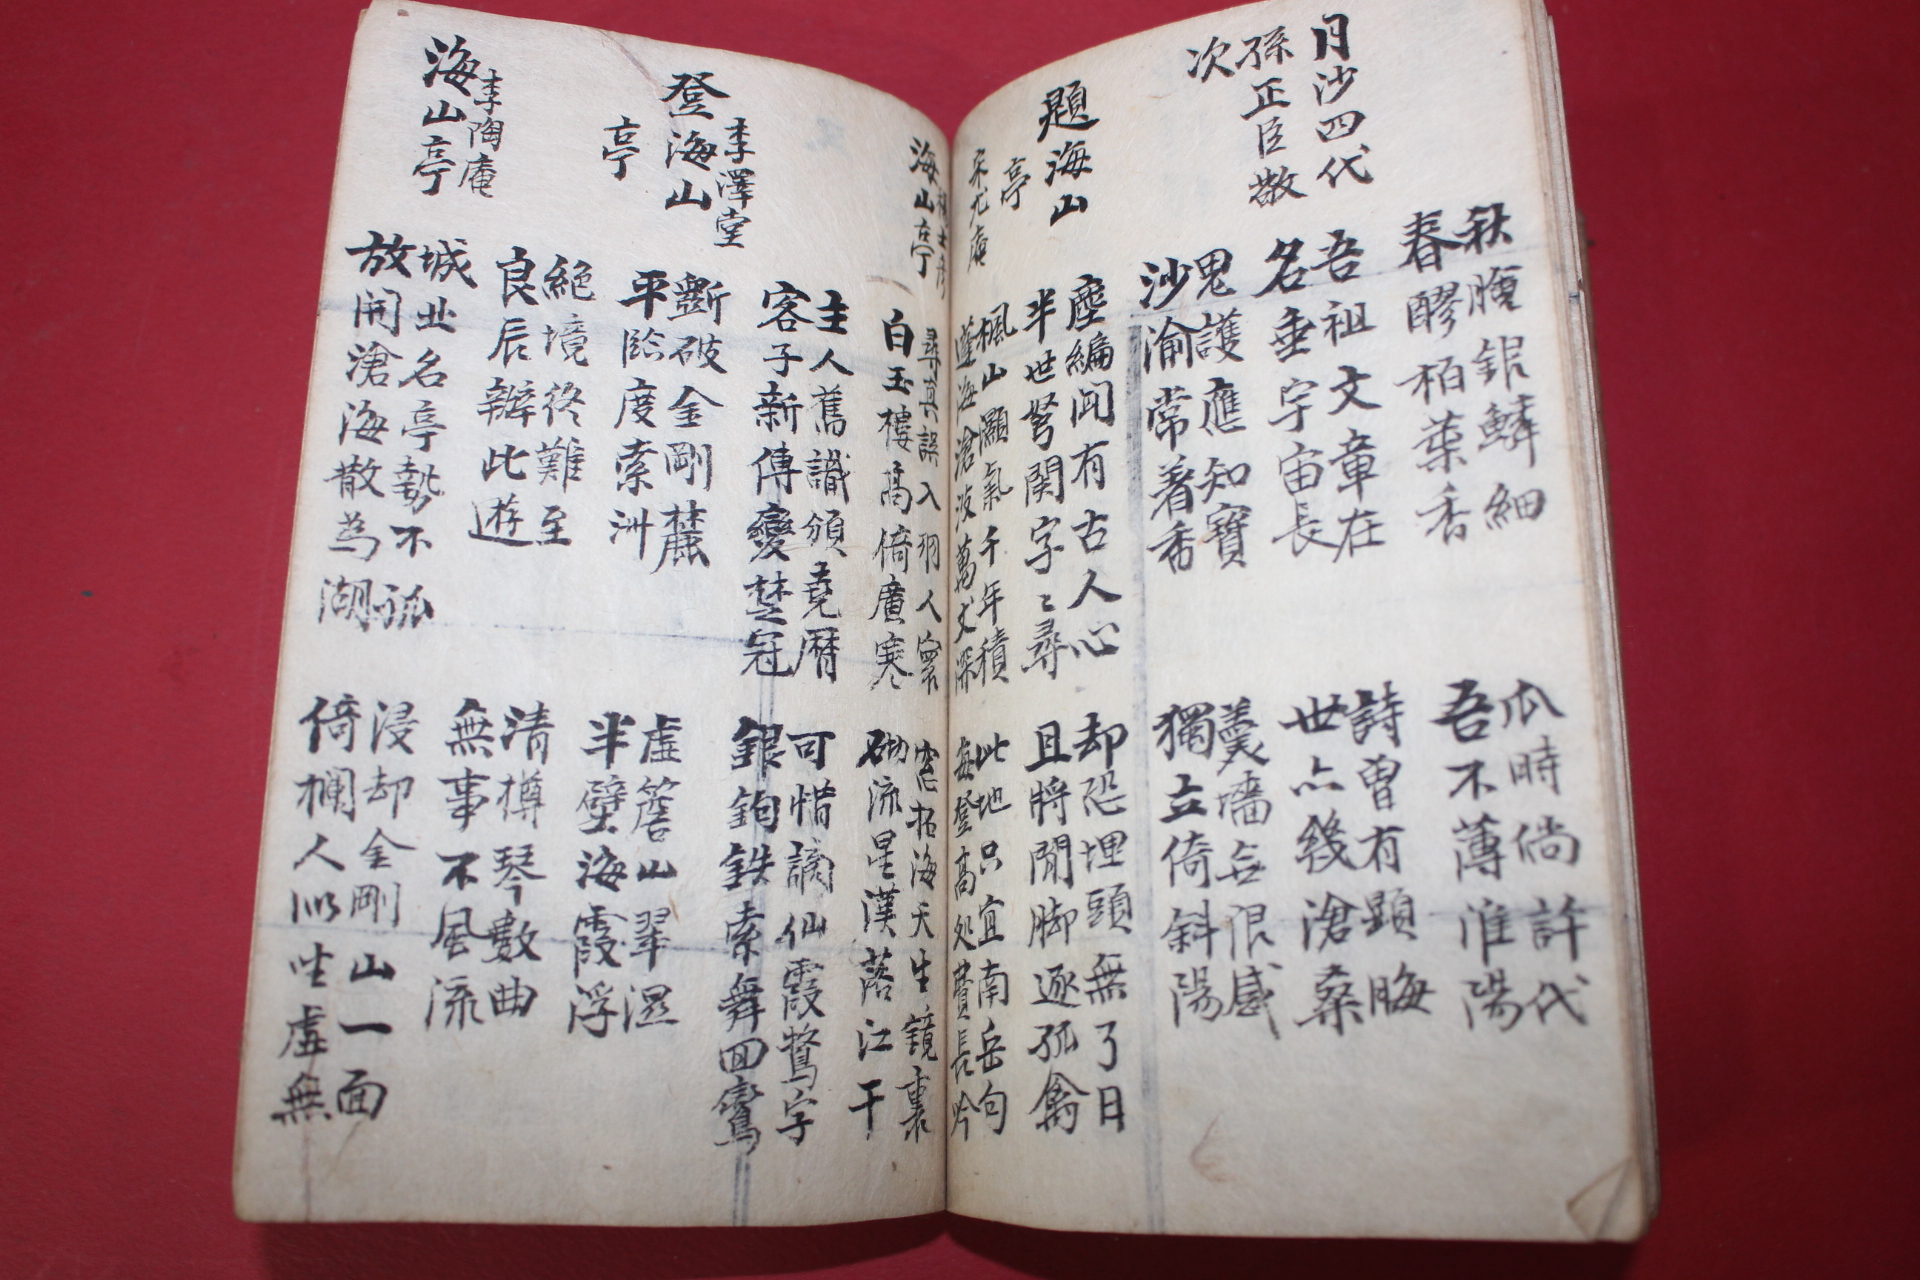 秋膾銀鱗細
春醪栢葉香
瓜時倘許代
吾不薄淮陽
月沙四代
孫正臣敬
次
吾祖文章在
名垂宇宙長
詩曾有題晦
世亦幾滄桑
鬼護應知寶
沙渝常着香
羹墻無限感
獨立倚斜陽
題海山
亭
宋尤庵
塵編闖有古人心
半世努関字〻尋
却恐埋頭無了日
且將閒脚逐孤禽
楓山灝氣千年積
蓬海滄波萬丈深
此地只宜南岳句
每登高処費長吟
海山亭
尋真誤入羽人寰
白玉樓高倚廣寒
窓拓海天生鏡裏
砌流星漢落江干
主人舊識頒堯曆
客子新傳變楚冠
可惜謫仙霞鶩字
銀鉤鉄索舞回鸞
登海山
亭
李澤堂
斷破金剛麓
平臨度索洲
虛簷山翠濕
半壁海霞浮
絕境終難至
良辰辦此遊
清樽琴數曲
無事不風流
海山亭
李陶庵
城出名亭勢不孤
放開滄海散為湖
浸却金剛山一面
倚欄人似坐虛無